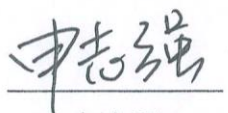 申志强